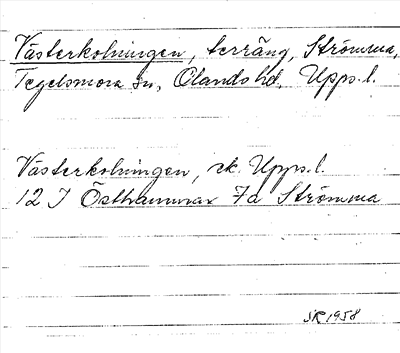 Västerkolningen, terräng, Strömma,
Tegelsmora sn, Olands hd, Upps. l.
Västerkolningen, ek. Upps. l.
12 I Östhammar 7d Strömma
SR 1958